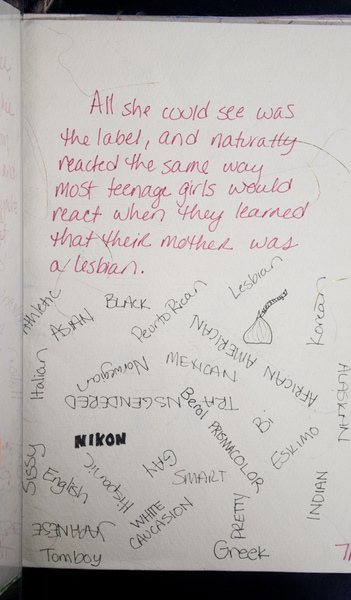 All she could see was
the label, and naturally
reacted the same way
most teenage girls would
react when they learned
that their mother was
a lesbian.
Athletic
ASIAN
BLACK
Peurto Rican
Lesbian
Korean
Italian
Norwegian
MEXICAN
AMERICAN
AFRICAN
RUSSIAN
TRANSGENDERED
Berol
PRISMACOLOR
Bi
ESKIMO
NIKON
Sissy
English
Hispanic
GAY
SMART
INDIAN
JAPANESE
WHITE
CAUCASION
PRETTY
Tomboy
Greek